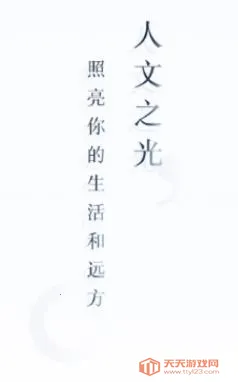 人文之光
照亮你的生活和远方
天天游戏网
www.ttyl23.com